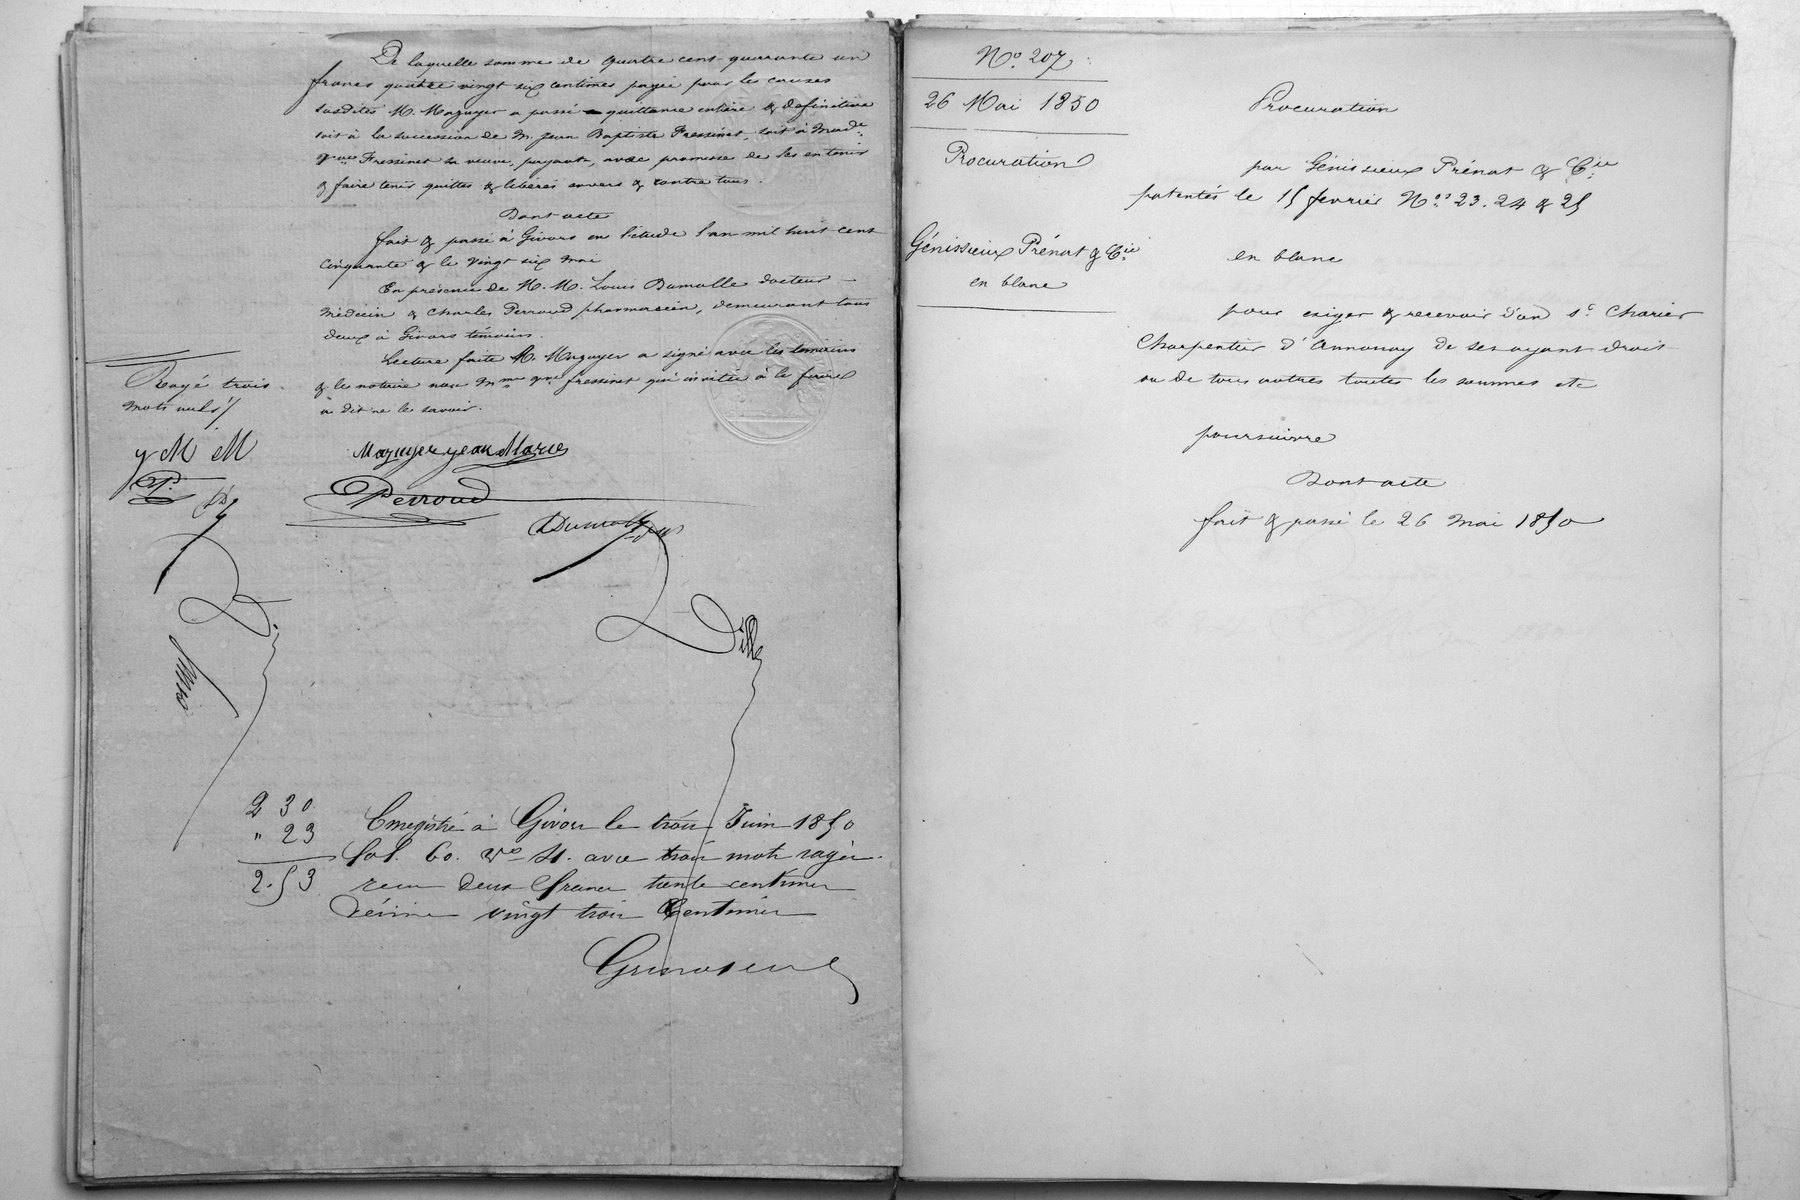 De laquelle somme de quatre cent quarante un
francs quatre vingt six centimes payée pour les causes
susdites M. Mazuyer a passé quittance entière & définitive
soit à la succession de M. Jean Baptiste Fressinet, soit à Made
Vve Fressinet sa veuve, payant, avec promesse de les en tenir
& faire tenir quittes & libérés envers & contre tous.
Dont acte
fait & passé à Givors en l'étude l'an mil huit cent
cinquante & le vingt six mai
En présence de M. M. Louis Dumolle docteur
médecin & Charles Perroud pharmacien, demeurant tous
deux à Givors témoins.
Lecture faite M. Mazuyer a signé avec les témoins
& le notaire non Mme Vve fressinet qui invitée à le faire
a dit ne le savoir.
Rayé trois
mots nuls
y M M
P.
Mazuyer jean Marie
Perroud
Dumolle
Dille
2 30
" 23
2.53
Enregistré à Givors le trois Juin 1850
fol. 60. vo 4. avec trois mots rayés.
reçu deux francs trente centimes
décime vingt trois centimes
No. 207
26 Mai 1850
Procuration
Génissieux Prénat & Cie
en blanc
Procuration
par Génissieux Prénat & Cie
patentés le 15 fevrier Nos. 23. 24 & 25
en blanc
pour exiger & recevoir d'un sr. Charier
Charpentier d'Annonay de ses ayant droit
ou de tous autres toutes les sommes etc
poursuivre
Dont acte
fait & passé le 26 mai 1850